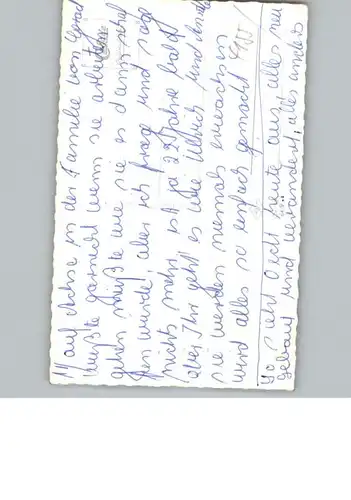 11) auf Achse in der Familie von Gerad
wußte garnicht wenn sie arbeiten
gehen müßte wie sie es dann schaf
fen würde, aber ich frage und sage
nichts mehr, ist ja 22 Jahre bald
aber Ihr geht es wie Ullrich und
sie werden niemals erwachsen
wird alles so einfach gemacht
So sieht Oecht heute aus, alles neu
gebaut und verändert, alles anders